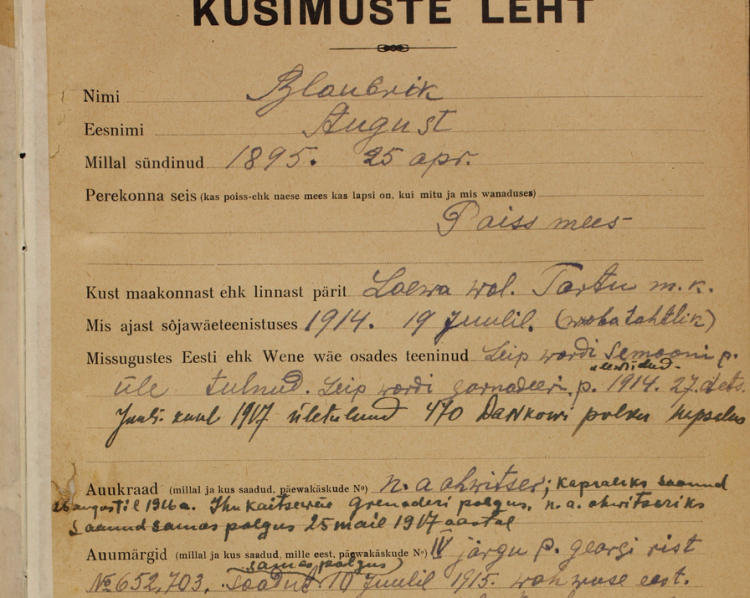 KÜSIMUSTE LEHT
Nimi Blaubrik
Eesnimi August
Millal sündinud 1895. 25 apr.
Perekonna seis (kas poiss-ehk naese mees kas lapsi on, kui mitu ja mis wanaduses)
Poiss mees
Kust maakonnast ehk linnast pärit Laewa wol. Tartu m.k.
Mis ajast sõjawäeteenistuses 1914. 19 Juulil. (woba tahtlik)
Missugustes Eesti ehk Wene wäe osades teeninud Leip wardi Semooni p.
üle tulnud. Leip wardi p. 1914. 27. dets.
Juuli kuul 1917 ületulnud 470 polku
Auukraad (millal ja kus saadud, päewakäskude №) n. a ohwitser; kapraliks saanud
26 augustil 1916 a. Ihu kaitsewäe grenaderi polgus. n. a. ohwitseriks
saanud samas polgus 25 mail 1917 aastal
Auumärgid (millal ja kus saadud, mille eest, päewakäskude №) IV järgu p. georgi rist
samas polgus
№ 652,703. saadud 10 Juulil 1915. eest.